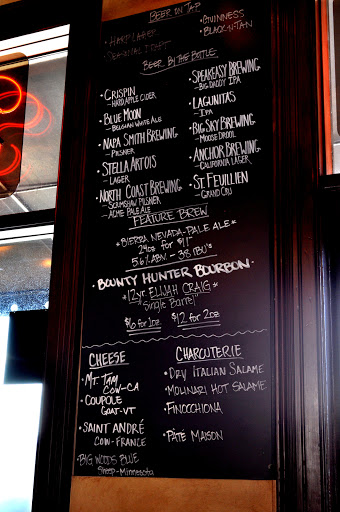 BEER ON TAP
HARP LAGER
SEASONAL DRAFT
· GUINNESS
· BLACK-N-TAN
BEER BY THE BOTTLE
· CRISPIN
- HARD APPLE CIDER
· BLUE MOON
- BELGIAN WHITE ALE
· NAPA SMITH BREWING
- PILSNER
· STELLA ARTOIS
- LAGER
· NORTH COAST BREWING
- SCRIMSHAW PILSNER
ACME PALE ALE
· SPEAKEASY BREWING
- BIG DADDY IPA
· LAGUNITAS
- IPA
· BIG SKY BREWING
- MOOSE DROOL
· ANCHOR BREWING
- CALIFORNIA LAGER
· ST. FEUILLIEN
- GRAND CRU
FEATURE BREW
* SIERRA NEVADA - PALE ALE *
24oz for $11
5.6% ABV. - 38 IBU's
· BOUNTY HUNTER BOURBON ·
* 12yr. ELIJAH CRAIG *
"Single Barrel"
$6 for 1oz $12 for 2oz
CHEESE
· MT TAM
COW-CA
· COUPOLE
GOAT-VT
· SAINT ANDRÉ
COW-FRANCE
· BIG WOODS BLUE
Sheep-Minnesota
CHARCUTERIE
· DRY ITALIAN SALAME
· MOLINARI HOT SALAME
· FINOCCHIONA
· PÂTÉ MAISON